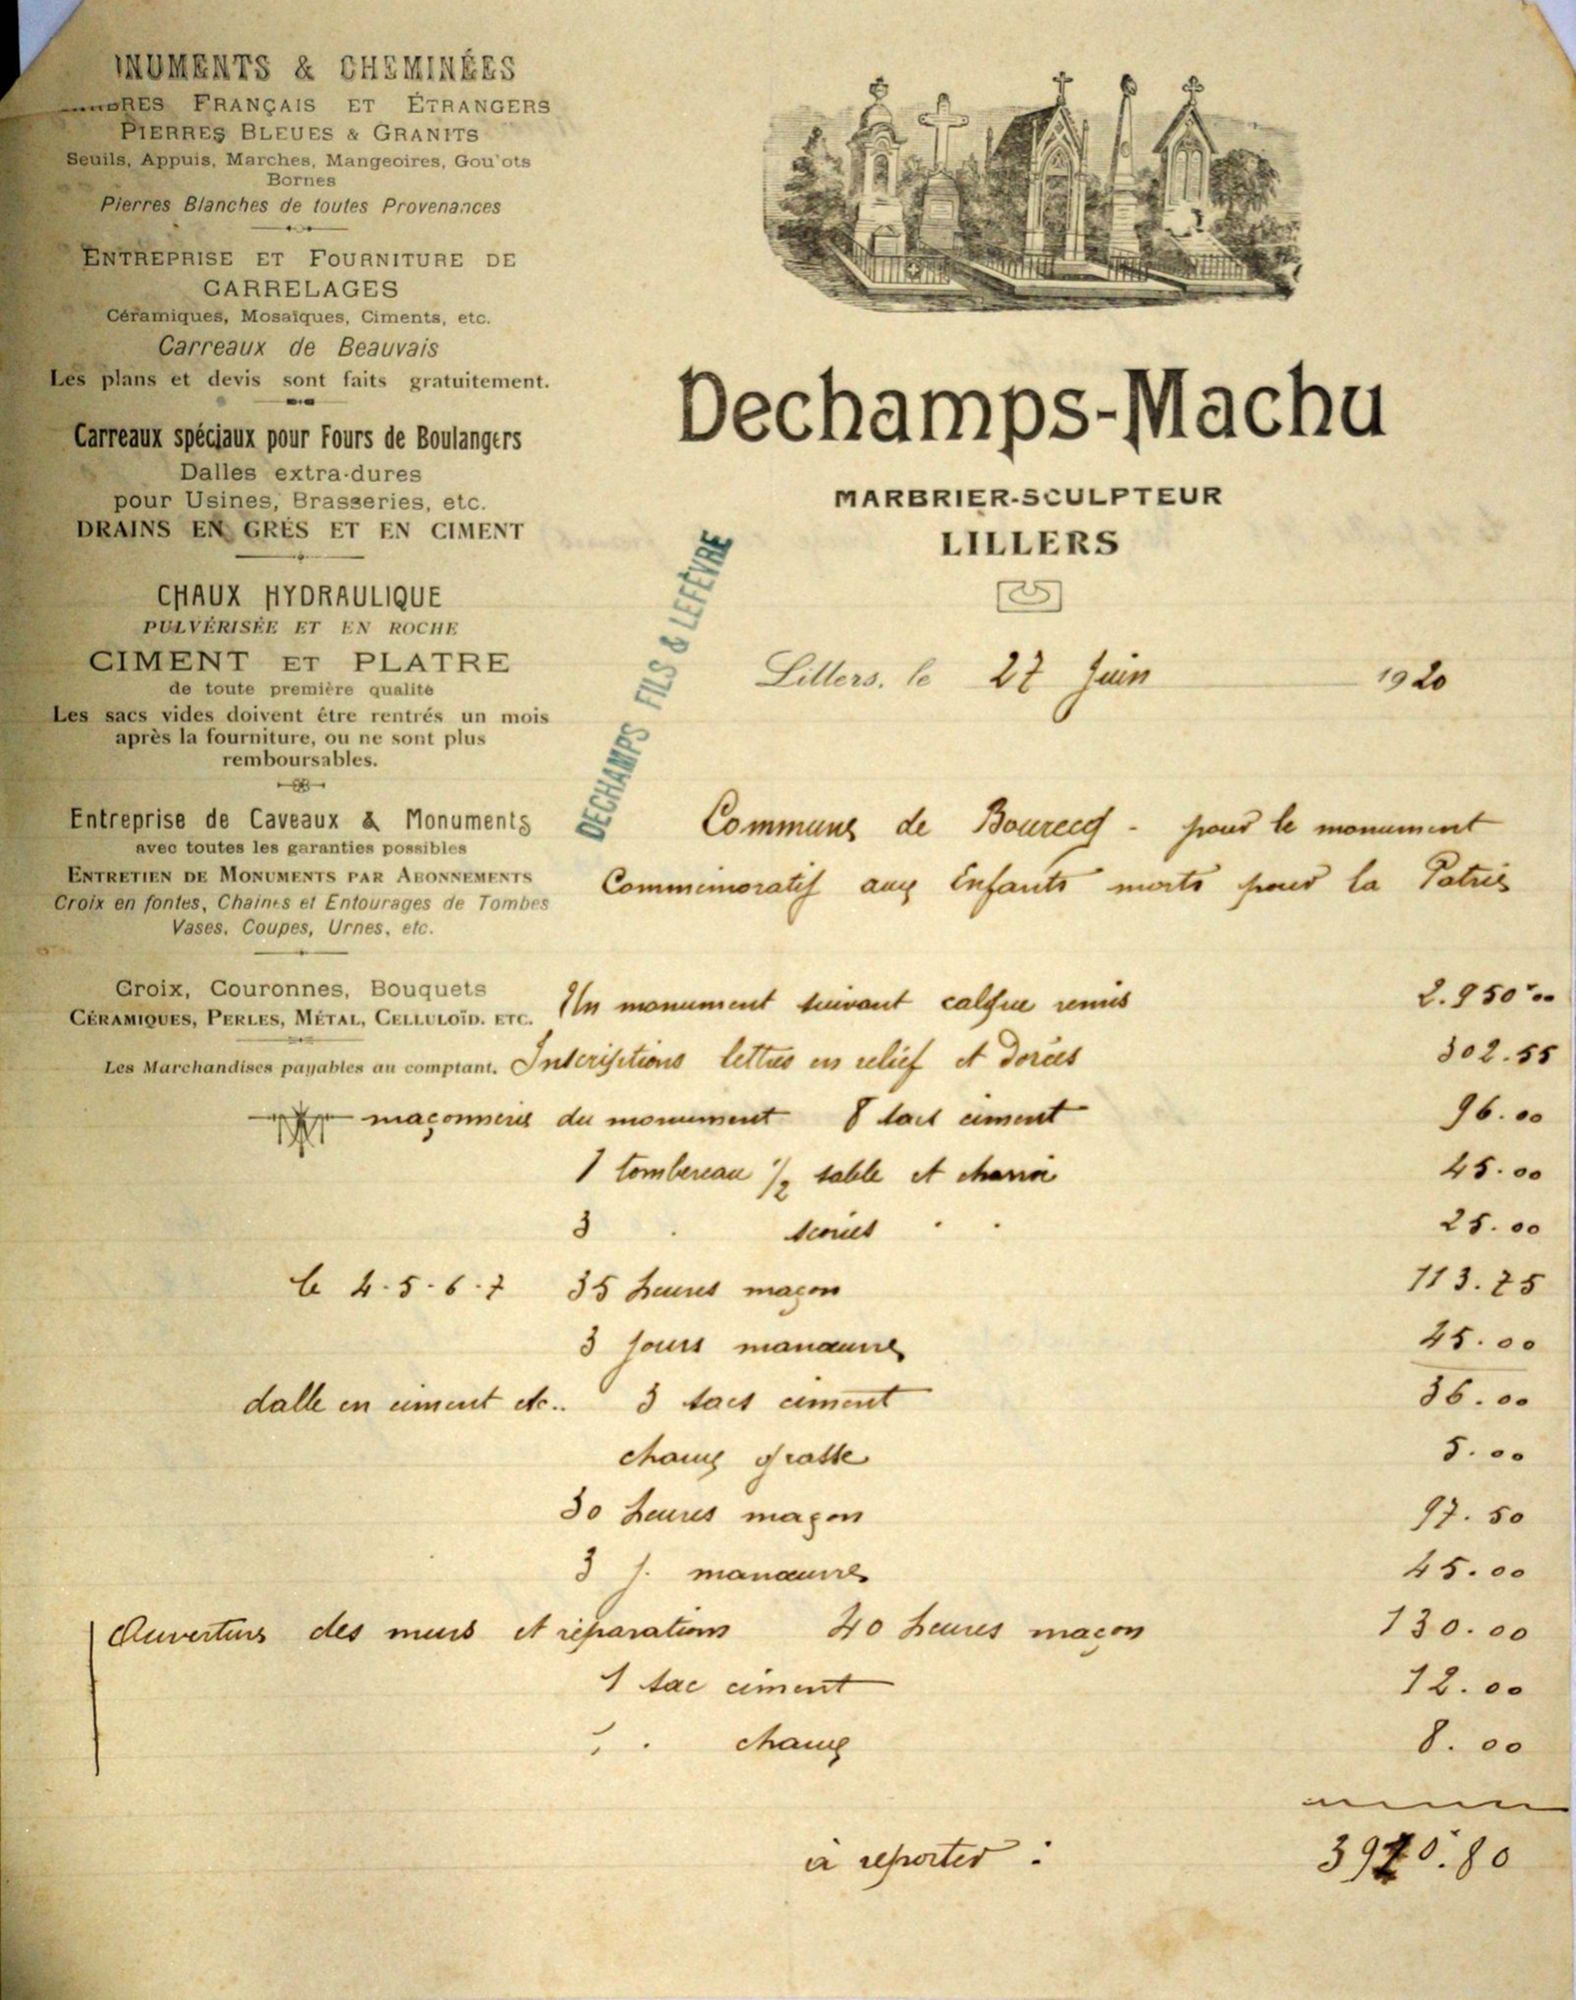 NUMENTS & CHEMINÉES
BRES FRANÇAIS ET ÉTRANGERS
PIERRES BLEUES & GRANITS
Seuils, Appuis, Marches, Mangeoires, Gou'ots
Bornes
Pierres Blanches de toutes Provenances
ENTREPRISE ET FOURNITURE DE
CARRELAGES
Céramiques, Mosaïques, Ciments, etc.
Carreaux de Beauvais
Les plans et devis sont faits gratuitement.
Carreaux spéciaux pour Fours de Boulangers
Dalles extra-dures
pour Usines, Brasseries, etc.
DRAINS EN GRÈS ET EN CIMENT
CHAUX HYDRAULIQUE
PULVÉRISÉE ET EN ROCHE
CIMENT ET PLATRE
de toute première qualité
Les sacs vides doivent être rentrés un mois
après la fourniture, ou ne sont plus
remboursables.
Entreprise de Caveaux & Monuments
avec toutes les garanties possibles
ENTRETIEN DE MONUMENTS PAR ABONNEMENTS
Croix en fontes, Chaines et Entourages de Tombes
Vases, Coupes, Urnes, etc.
Croix, Couronnes, Bouquets
CÉRAMIQUES, PERLES, MÉTAL, CELLULOÏD. ETC.
Les Marchandises payables au comptant.
Dechamps-Machu
MARBRIER-SCULPTEUR
LILLERS
DECHAMPS FILS & LEFÈVRE
Lillers, le 27 Juin 1920
Commune de Bourecq - pour le monument
Commémoratif aux Enfants morts pour la Patrie
Un monument suivant calque remis 2.950.00
Inscriptions lettres en relief et dorées 302.55
maçonnerie du monument 8 sacs ciment 96.00
1 tombereau 1/2 sable et charroi 45.00
3 . scories . . 25.00
le 4.5.6.7 35 heures maçon 113.75
3 jours manœuvre 45.00
dalle en ciment etc.. 3 sacs ciment 36.00
chaux grasse 5.00
30 heures maçon 97.50
3 j. manœuvre 45.00
Ouverture des murs et réparations 40 heures maçon 130.00
1 sac ciment 12.00
. chaux 8.00
à reporter : 3910.80